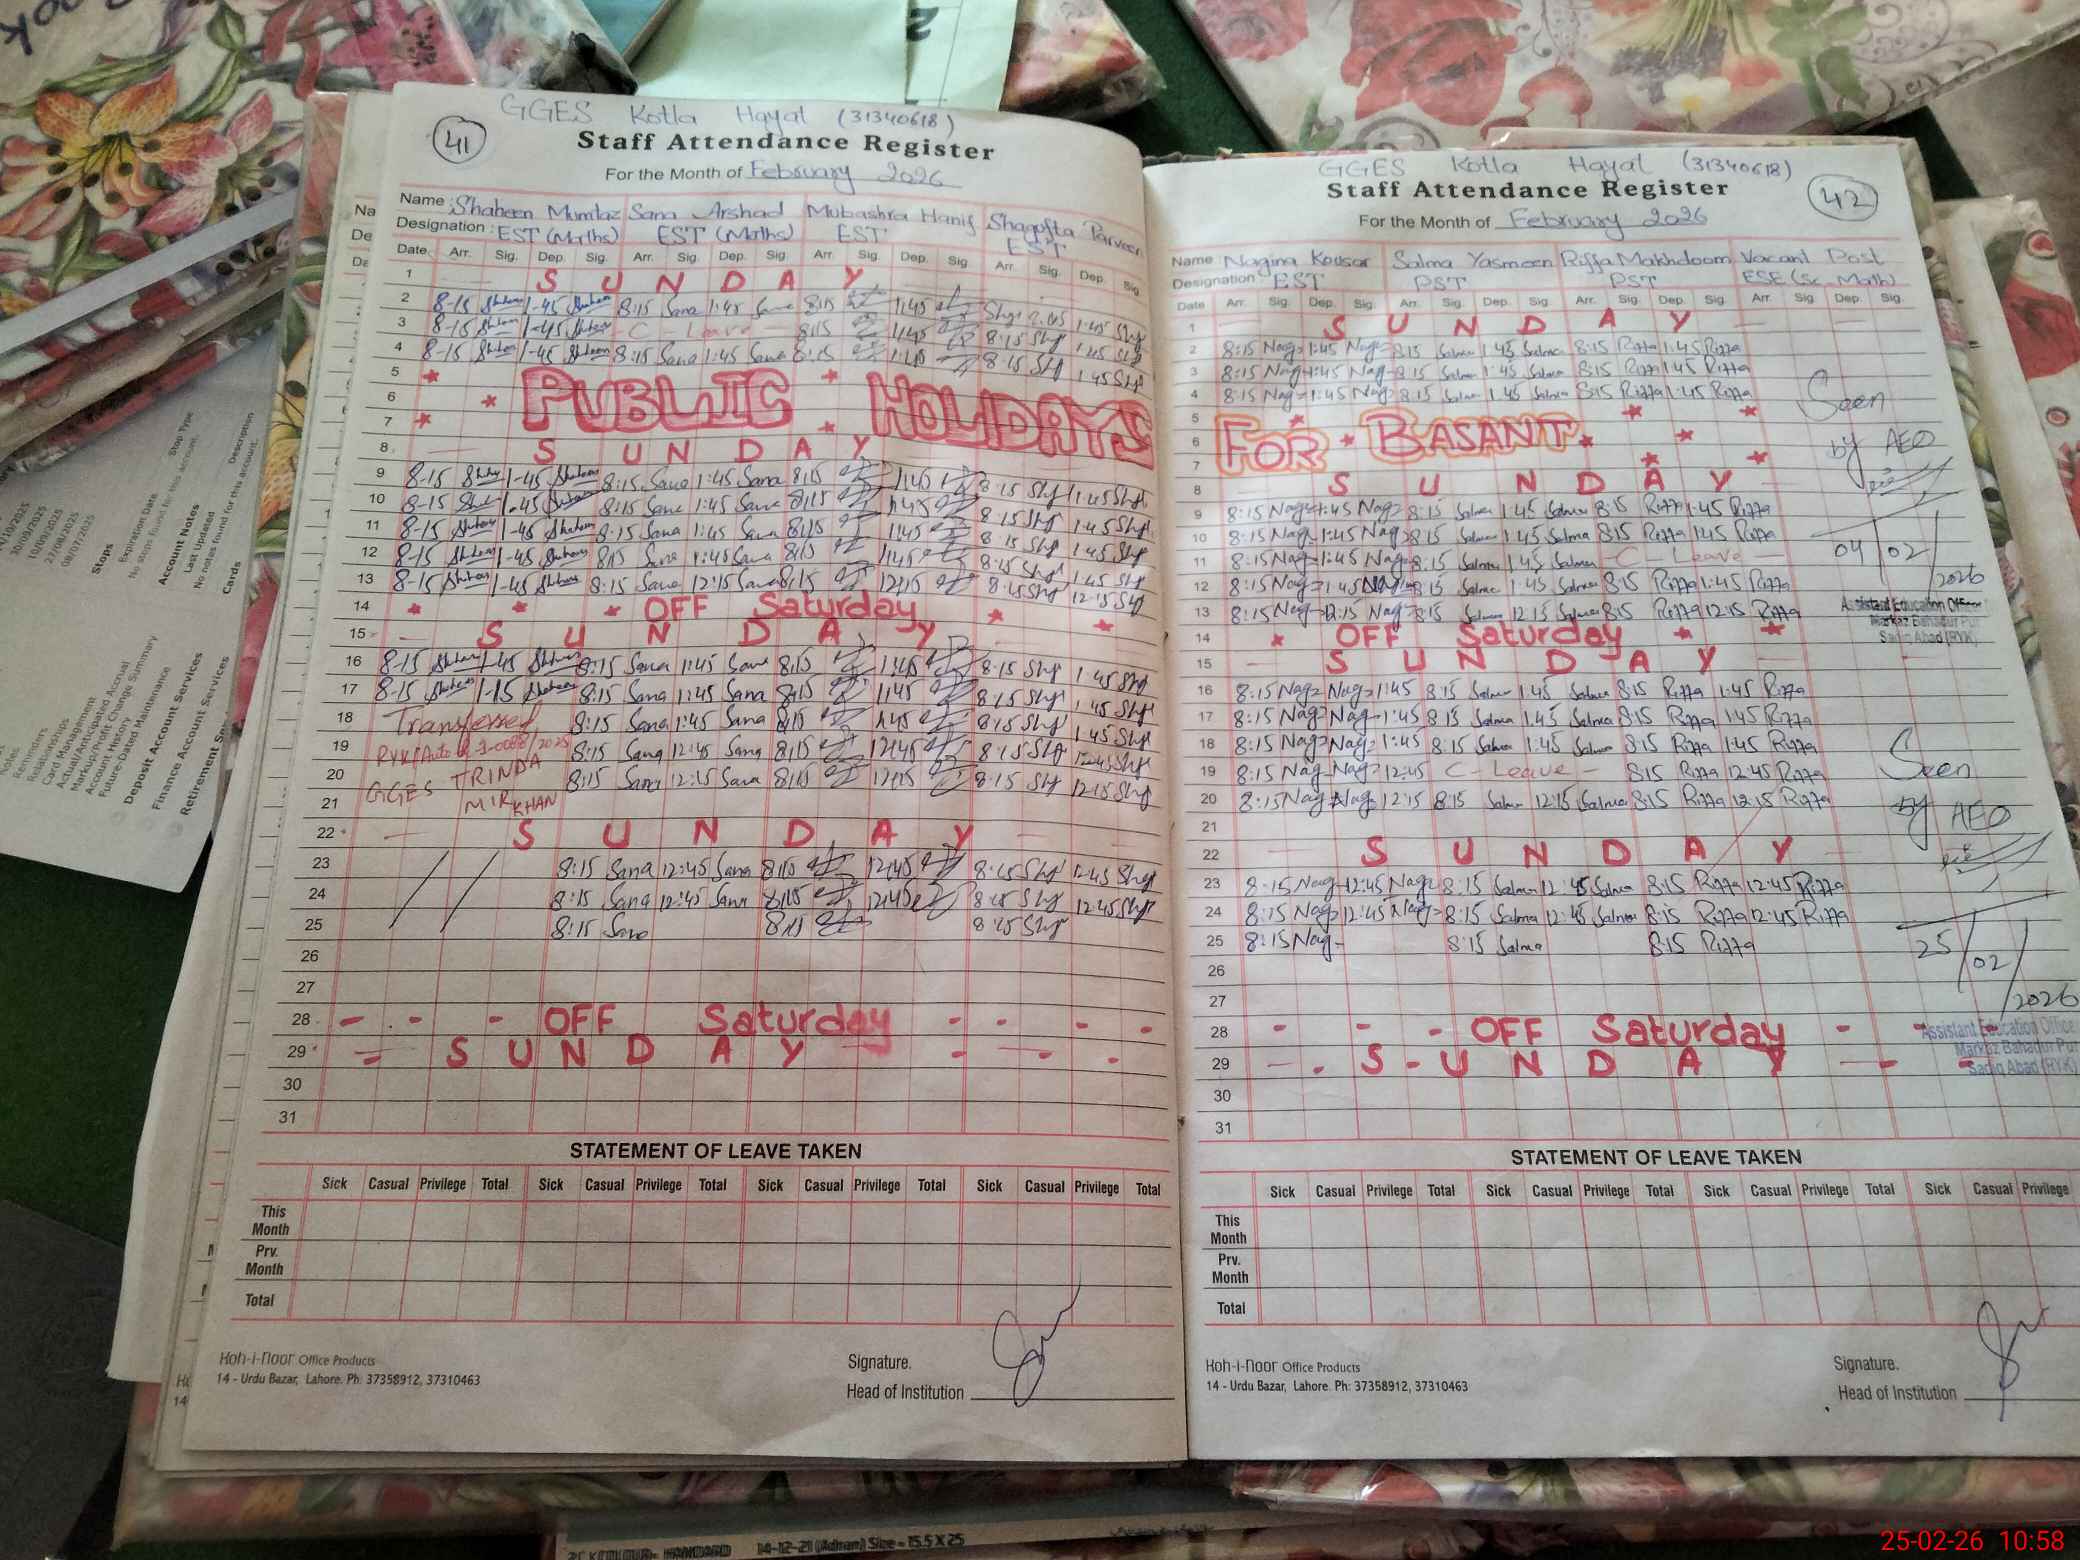 GGES Kotla Hayat (31340618)
41
Staff Attendance Register
For the Month of February 2026
Name : Shaheen Mumtaz Sana Arshad Mubashra Hanif Shagufta Parveen
Designation : EST (Maths) EST (Maths) EST EST
Date Arr. Sig. Dep. Sig. Arr. Sig. Dep. Sig. Arr. Sig. Dep. Sig. Arr. Sig. Dep. Sig.
1 S U N D A Y
2 8-15 Shaheen 1-45 Shaheen 8:15 Sana 1:45 Sana 8:15 1:45 1:45
3 8-15 Shaheen 1-45 Shaheen - C - Leave - 8:15 1:45 8:15 1:45
4 8-15 Shaheen 1-45 Shaheen 8:15 Sana 1:45 Sana 8:15 1:45 8:15 1:45
5
6 PUBLIC HOLIDAYS
7
8 S U N D A Y
9 8-15 1-45 Shaheen 8:15 Sana 1:45 Sana 8:15 1:45 8:15 1:45
10 8-15 1-45 Shaheen 8:15 Sana 1:45 Sana 8:15 1:45 8:15 1:45
11 8-15 Shaheen 1-45 Shaheen 8:15 Sana 1:45 Sana 8:15 1:45 8:15 1:45
12 8-15 Shaheen 1-45 Shaheen 8:15 Sana 1:45 Sana 8:15 1:45 8:15 1:45
13 8-15 Shaheen 1-45 Shaheen 8:15 Sana 12:15 Sana 8:15 12:15 8:15 12:15
14 OFF Saturday
15 S U N D A Y
16 8-15 Shaheen 1-45 Shaheen 8:15 Sana 1:45 Sana 8:15 1:45 8:15 1:45
17 8-15 Shaheen 1-15 Shaheen 8:15 Sana 1:45 Sana 8:15 1:45 8:15 1:45
18 Transferred 8:15 Sana 1:45 Sana 8:15 1:45 8:15 1:45
19 8:15 Sana 12:45 Sana 8:15 12:45 8:15 12:45
20 GGES TRINDA 8:15 Sana 12:15 Sana 8:15 12:15 8:15 12:15
21 MIR KHAN
22 S U N D A Y
23 8:15 Sana 12:45 Sana 8:15 12:45 8:15 12:45
24 8:15 Sana 12:45 Sana 8:15 12:45 8:15 12:45
25 8:15 Sana 8:15 8:15
26
27
28 - - - OFF Saturday - - - -
29 S U N D A Y
30
31
STATEMENT OF LEAVE TAKEN
Sick Casual Privilege Total Sick Casual Privilege Total Sick Casual Privilege Total Sick Casual Privilege Total
This Month
Prv. Month
Total
Koh-i-noor Office Products
14 - Urdu Bazar, Lahore. Ph: 37358912, 37310463
Signature.
Head of Institution
GGES Kotla Hayat (31340618)
Staff Attendance Register
42
For the Month of February 2026
Name : Nagina Kousar Salma Yasmeen Riffa Makhdoom Vacant Post
Designation : EST PST PST ESE (Sc. Math)
Date Arr. Sig. Dep. Sig. Arr. Sig. Dep. Sig. Arr. Sig. Dep. Sig. Arr. Sig. Dep. Sig.
1 S U N D A Y
2 8:15 Nag 1:45 Nag 8:15 Salma 1:45 Salma 8:15 Riffa 1:45 Riffa
3 8:15 Nag 1:45 Nag 8:15 Salma 1:45 Salma 8:15 Riffa 1:45 Riffa
4 8:15 Nag 1:45 Nag 8:15 Salma 1:45 Salma 8:15 Riffa 1:45 Riffa
Seen
5
6 FOR BASANT
by AEO
7
8 S U N D A Y
9 8:15 Nag 1:45 Nag 8:15 Salma 1:45 Salma 8:15 Riffa 1:45 Riffa
10 8:15 Nag 1:45 Nag 8:15 Salma 1:45 Salma 8:15 Riffa 1:45 Riffa
11 8:15 Nag 1:45 Nag 8:15 Salma 1:45 Salma - C - Leave -
04/02/2026
12 8:15 Nag 1:45 Nag 8:15 Salma 1:45 Salma 8:15 Riffa 1:45 Riffa
13 8:15 Nag 12:15 Nag 8:15 Salma 12:15 Salma 8:15 Riffa 12:15 Riffa
Assistant Education Officer
Markaz Bahadur Pur
Sadiq Abad (RYK)
14 OFF Saturday
15 S U N D A Y
16 8:15 Nag Nag 1:45 8:15 Salma 1:45 Salma 8:15 Riffa 1:45 Riffa
17 8:15 Nag Nag 1:45 8:15 Salma 1:45 Salma 8:15 Riffa 1:45 Riffa
18 8:15 Nag Nag 1:45 8:15 Salma 1:45 Salma 8:15 Riffa 1:45 Riffa
19 8:15 Nag Nag 12:45 C - Leave - 8:15 Riffa 12:45 Riffa
Seen
20 8:15 Nag Nag 12:15 8:15 Salma 12:15 Salma 8:15 Riffa 12:15 Riffa
by AEO
21
22 S U N D A Y
23 8:15 Nag 12:45 Nag 8:15 Salma 12:45 Salma 8:15 Riffa 12:45 Riffa
24 8:15 Nag 12:45 Nag 8:15 Salma 12:45 Salma 8:15 Riffa 12:45 Riffa
25 8:15 Nag 8:15 Salma 8:15 Riffa
25/02/2026
26
27
28 - - - OFF Saturday - - -
Assistant Education Officer
Markaz Bahadur Pur
Sadiq Abad (RYK)
29 S U N D A Y
30
31
STATEMENT OF LEAVE TAKEN
Sick Casual Privilege Total Sick Casual Privilege Total Sick Casual Privilege Total Sick Casual Privilege
This Month
Prv. Month
Total
Koh-i-noor Office Products
14 - Urdu Bazar, Lahore. Ph: 37358912, 37310463
Signature.
Head of Institution
Stop Type
Description
Expiration Date
Stops
Account Notes
Last Updated
Cards
10/09/2025
27/08/2025
08/07/2025
Reminders
Relationships
Card Management
Actual/Anticipated Accrual
Markup/Profit Change Summary
Account History
Future-Dated Maintenance
Deposit Account Services
Finance Account Services
Retirement
14-12-21 (Adnan) Size = 15.5 X 25
25-02-26 10:58